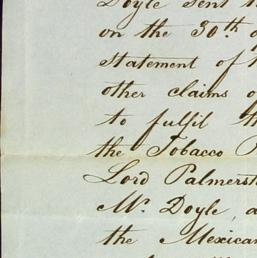 Doyle sent
on the 30th
statement of
other claims
to fulfil
the Tobacco
Lord
Mr. Doyle,
the Mexican